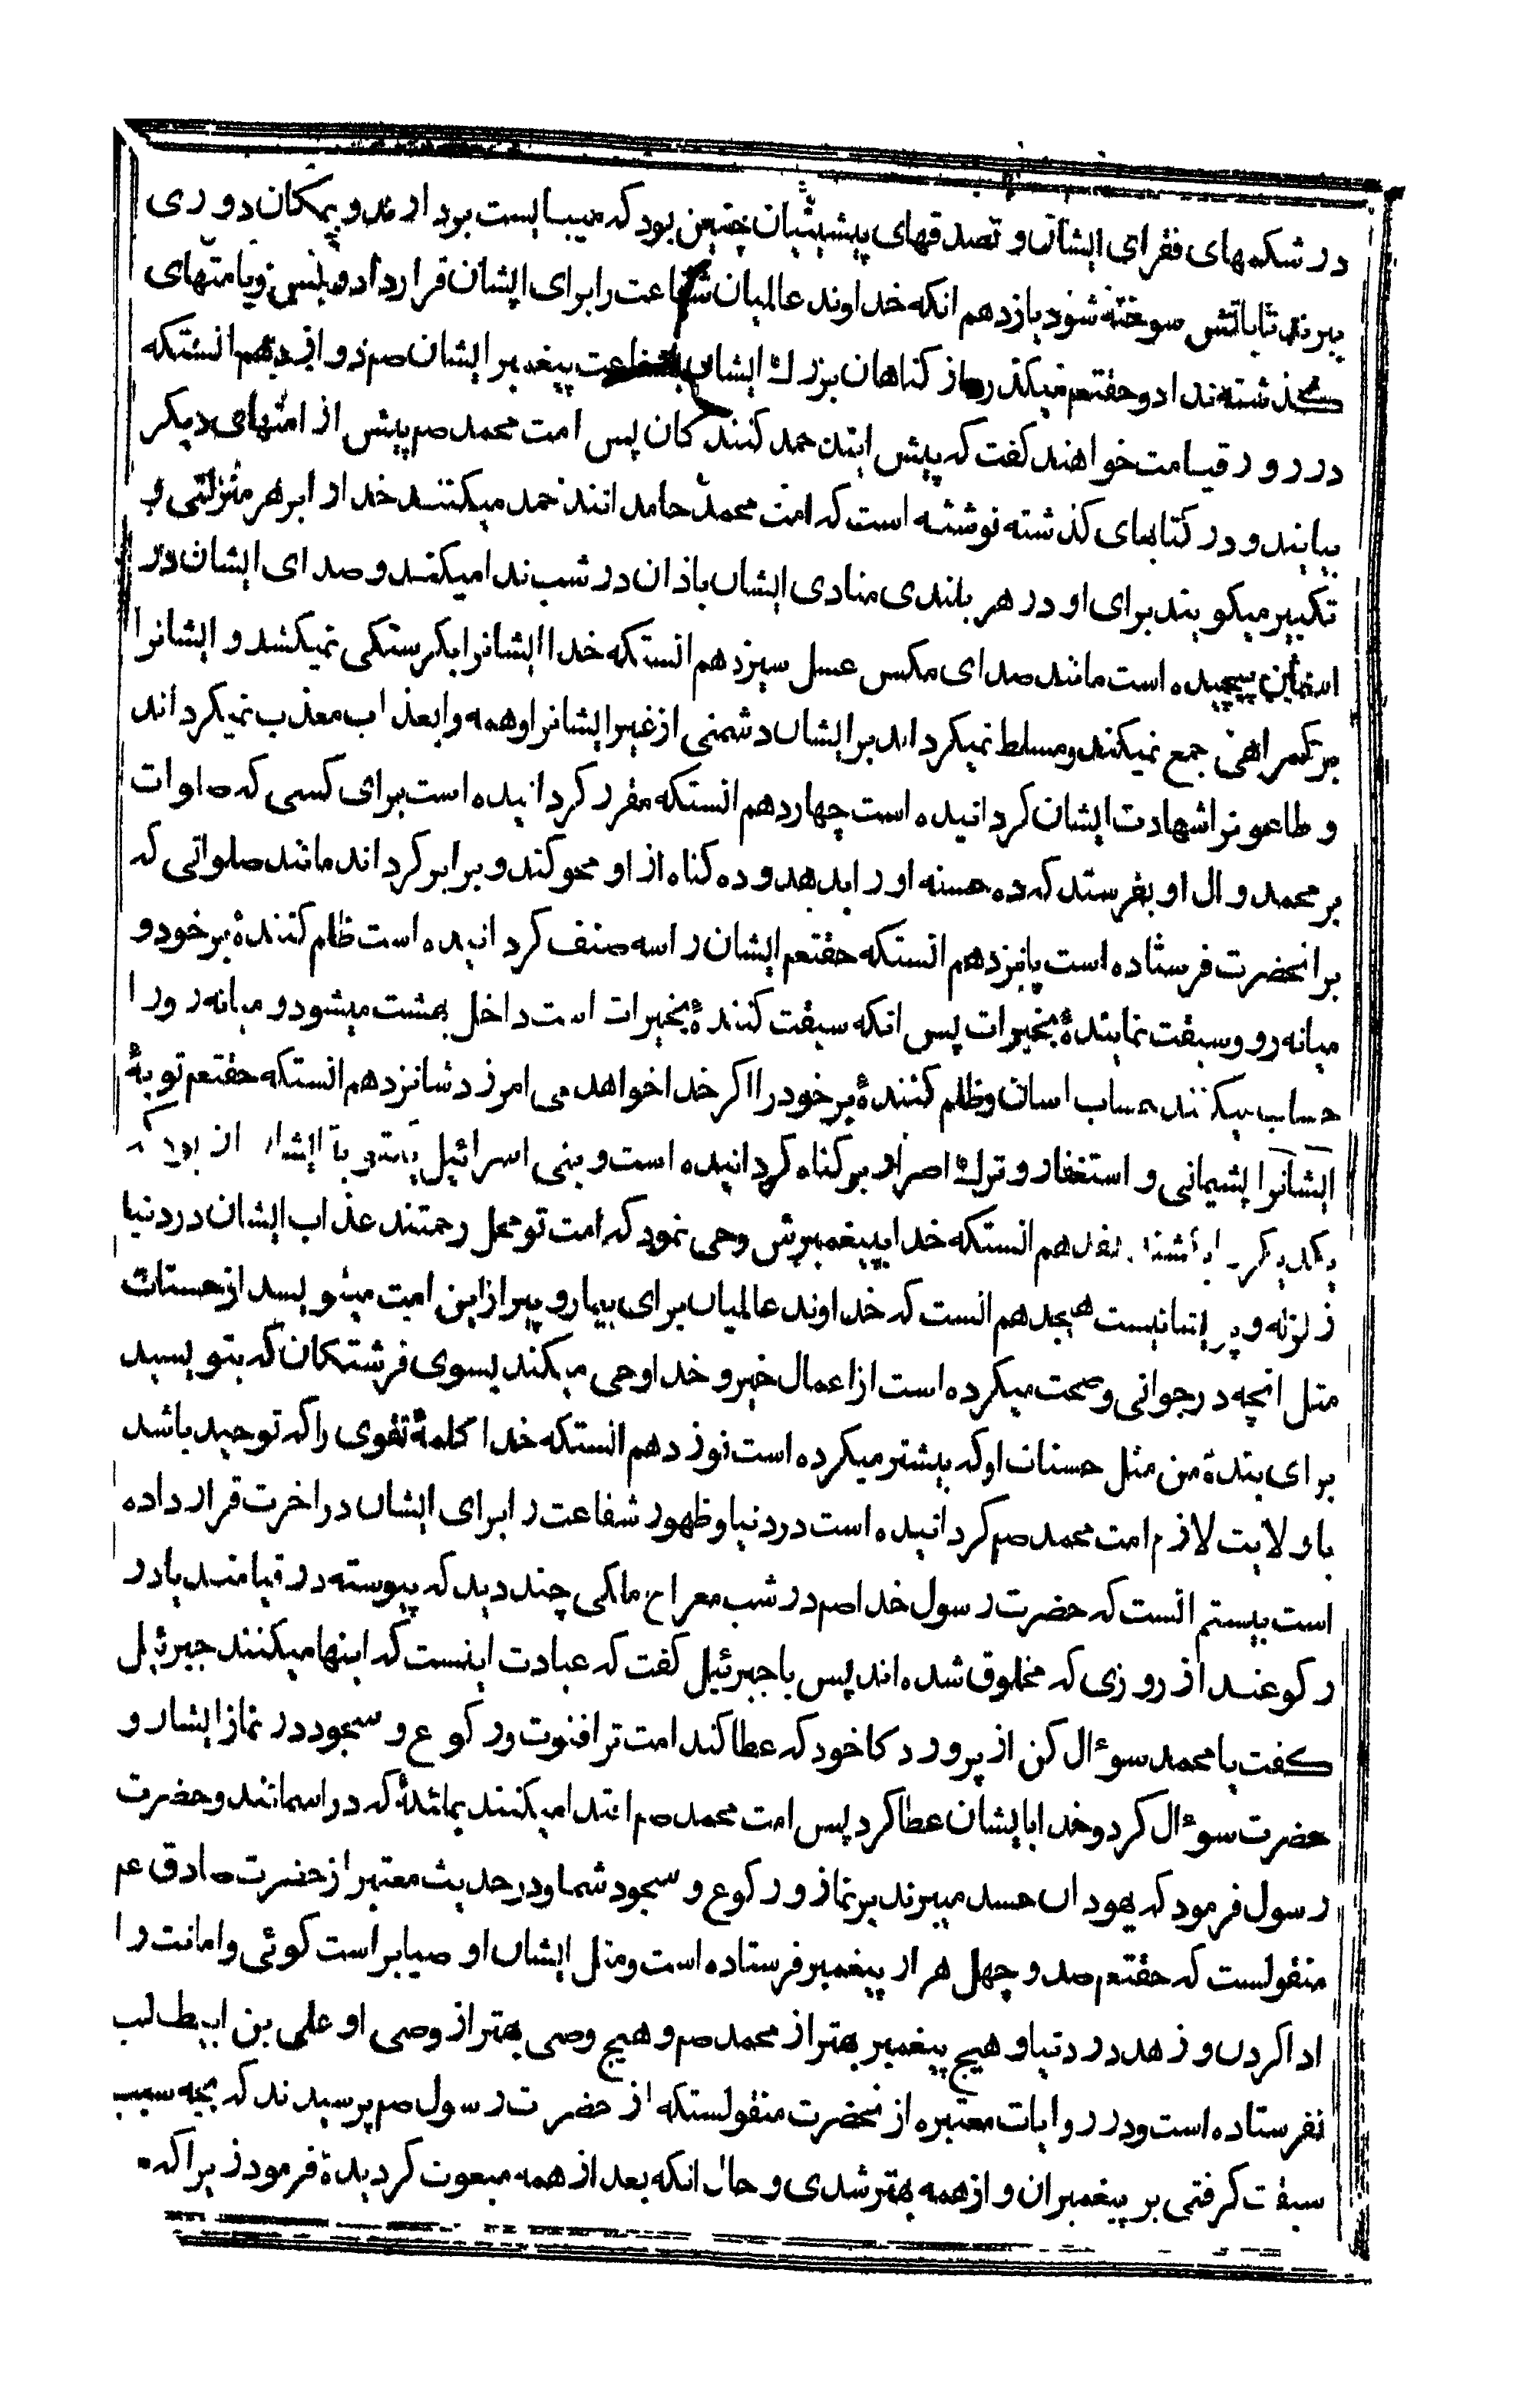 در شکمهای فقرای ایشان و تصدقهای پیشینیان چنین بود که میبایست بردارند و بمکان دوری
ببرند تا باتش سوخته شود یازدهم انکه خداوند عالمیان شفاعت را برای ایشان قرار داد و بامتهای
کذشته نداد و حقتعم میکذرد از کناهان بزرك ایشان بشفاعت پیغمبر ایشان صم دوازدهم انستکه
در روز قیامت خواهند کفت که پیش ایند حمد کنندکان پس امت محمد صم پیش از امتهای دیکر
بیایند و در کتابهای کذشته نوشته است که امت محمد حامدانند حمد میکنند خدا را بر هر منزلتی و
تکبیر میکویند برای او در هر بلندی منادی ایشان باذان در شب ندا میکند و صدای ایشان در
اسمان پیچیده است مانند صدای مکس عسل سیزدهم انستکه خدا ایشانرا بکرستکی نمیکشد و ایشانرا
بر کمراهی جمع نمیکند و مسلط نمیکرداند بر ایشان دشمنی از غیر ایشانرا و همه را بعذاب معذب نمیکرداند
و طاعونرا شهادت ایشان کردانیده است چهاردهم انستکه مقرر کردانیده است برای کسی که صلوات
بر محمد و ال او بفرستد که ده حسنه او را بدهد و ده کناه از او محو کند و برابر کرداند مانند صلواتی که
بر انحضرت فرستاده است پانزدهم انستکه حقتعم ایشان را سه صنف کردانیده است ظلم کنندهٔ بر خود و
میانه رو و سبقت نمایندهٔ بخیرات پس انکه سبقت کنندهٔ بخیرات است داخل بهشت میشود و میانه رو را
حساب میکنند حساب اسان و ظلم کنندهٔ بر خود را اکر خدا خواهد می امرزد شانزدهم انستکه حقتعم توبهٔ
ایشانرا پشیمانی و استغفار و ترك اصرار بر کناه کردانیده است و بنی اسرائیل توبهٔ ایشان ان بود که
یکدیکر را بکشند هفدهم انستکه خدا بپیغمبرش وحی نمود که امت تو محل رحمتند عذاب ایشان در دنیا
زلزله و پریشانیست هیجدهم انست که خداوند عالمیان برای بیمار و پیر از این امت مینویسد از حسنات
مثل انچه در جوانی و صحت میکرده است از اعمال خیر و خدا وحی میکند بسوی فرشتکان که بنویسید
برای بندهٔ من مثل حسنات او که پیشتر میکرده است نوزدهم انستکه خدا کلمهٔ تقوی را که توحید باشد
با ولایت لازم امت محمد صم کردانیده است در دنیا و ظهور شفاعت را برای ایشان در اخرت قرار داده
است بیستم انست که حضرت رسول خدا صم در شب معراج ملکی چند دید که پیوسته در قیامند یا در
رکوعند از روزی که مخلوق شده اند پس با جبرئیل کفت که عبادت اینست که اینها میکنند جبرئیل
کفت یا محمد سؤال کن از پروردکار خود که عطا کند امت ترا قنوت و رکوع و سجود در نماز ایشان و
حضرت سؤال کرد و خدا بایشان عطا کرد پس امت محمد صم اقتدا میکنند بملئکهٔ که در اسمانند و حضرت
رسول فرمود که یهودان حسد میبرند بر نماز و رکوع و سجود شما و در حدیث معتبر از حضرت صادق عم
منقولست که حقتعم صد و چهل هزار پیغمبر فرستاده است و مثل ایشان اوصیا براست کوئی و امانت را
ادا کردن و زهد در دنیا و هیچ پیغمبر بهتر از محمد صم و هیچ وصی بهتر از وصی او علی بن ابیطالب
نفرستاده است و در روایات معتبره از انحضرت منقولستکه از حضرت رسول صم پرسیدند که بچه سبب
سبقت کرفتی بر پیغمبران و از همه بهتر شدی و حال انکه بعد از همه مبعوث کردیدهٔ فرمود زیرا که